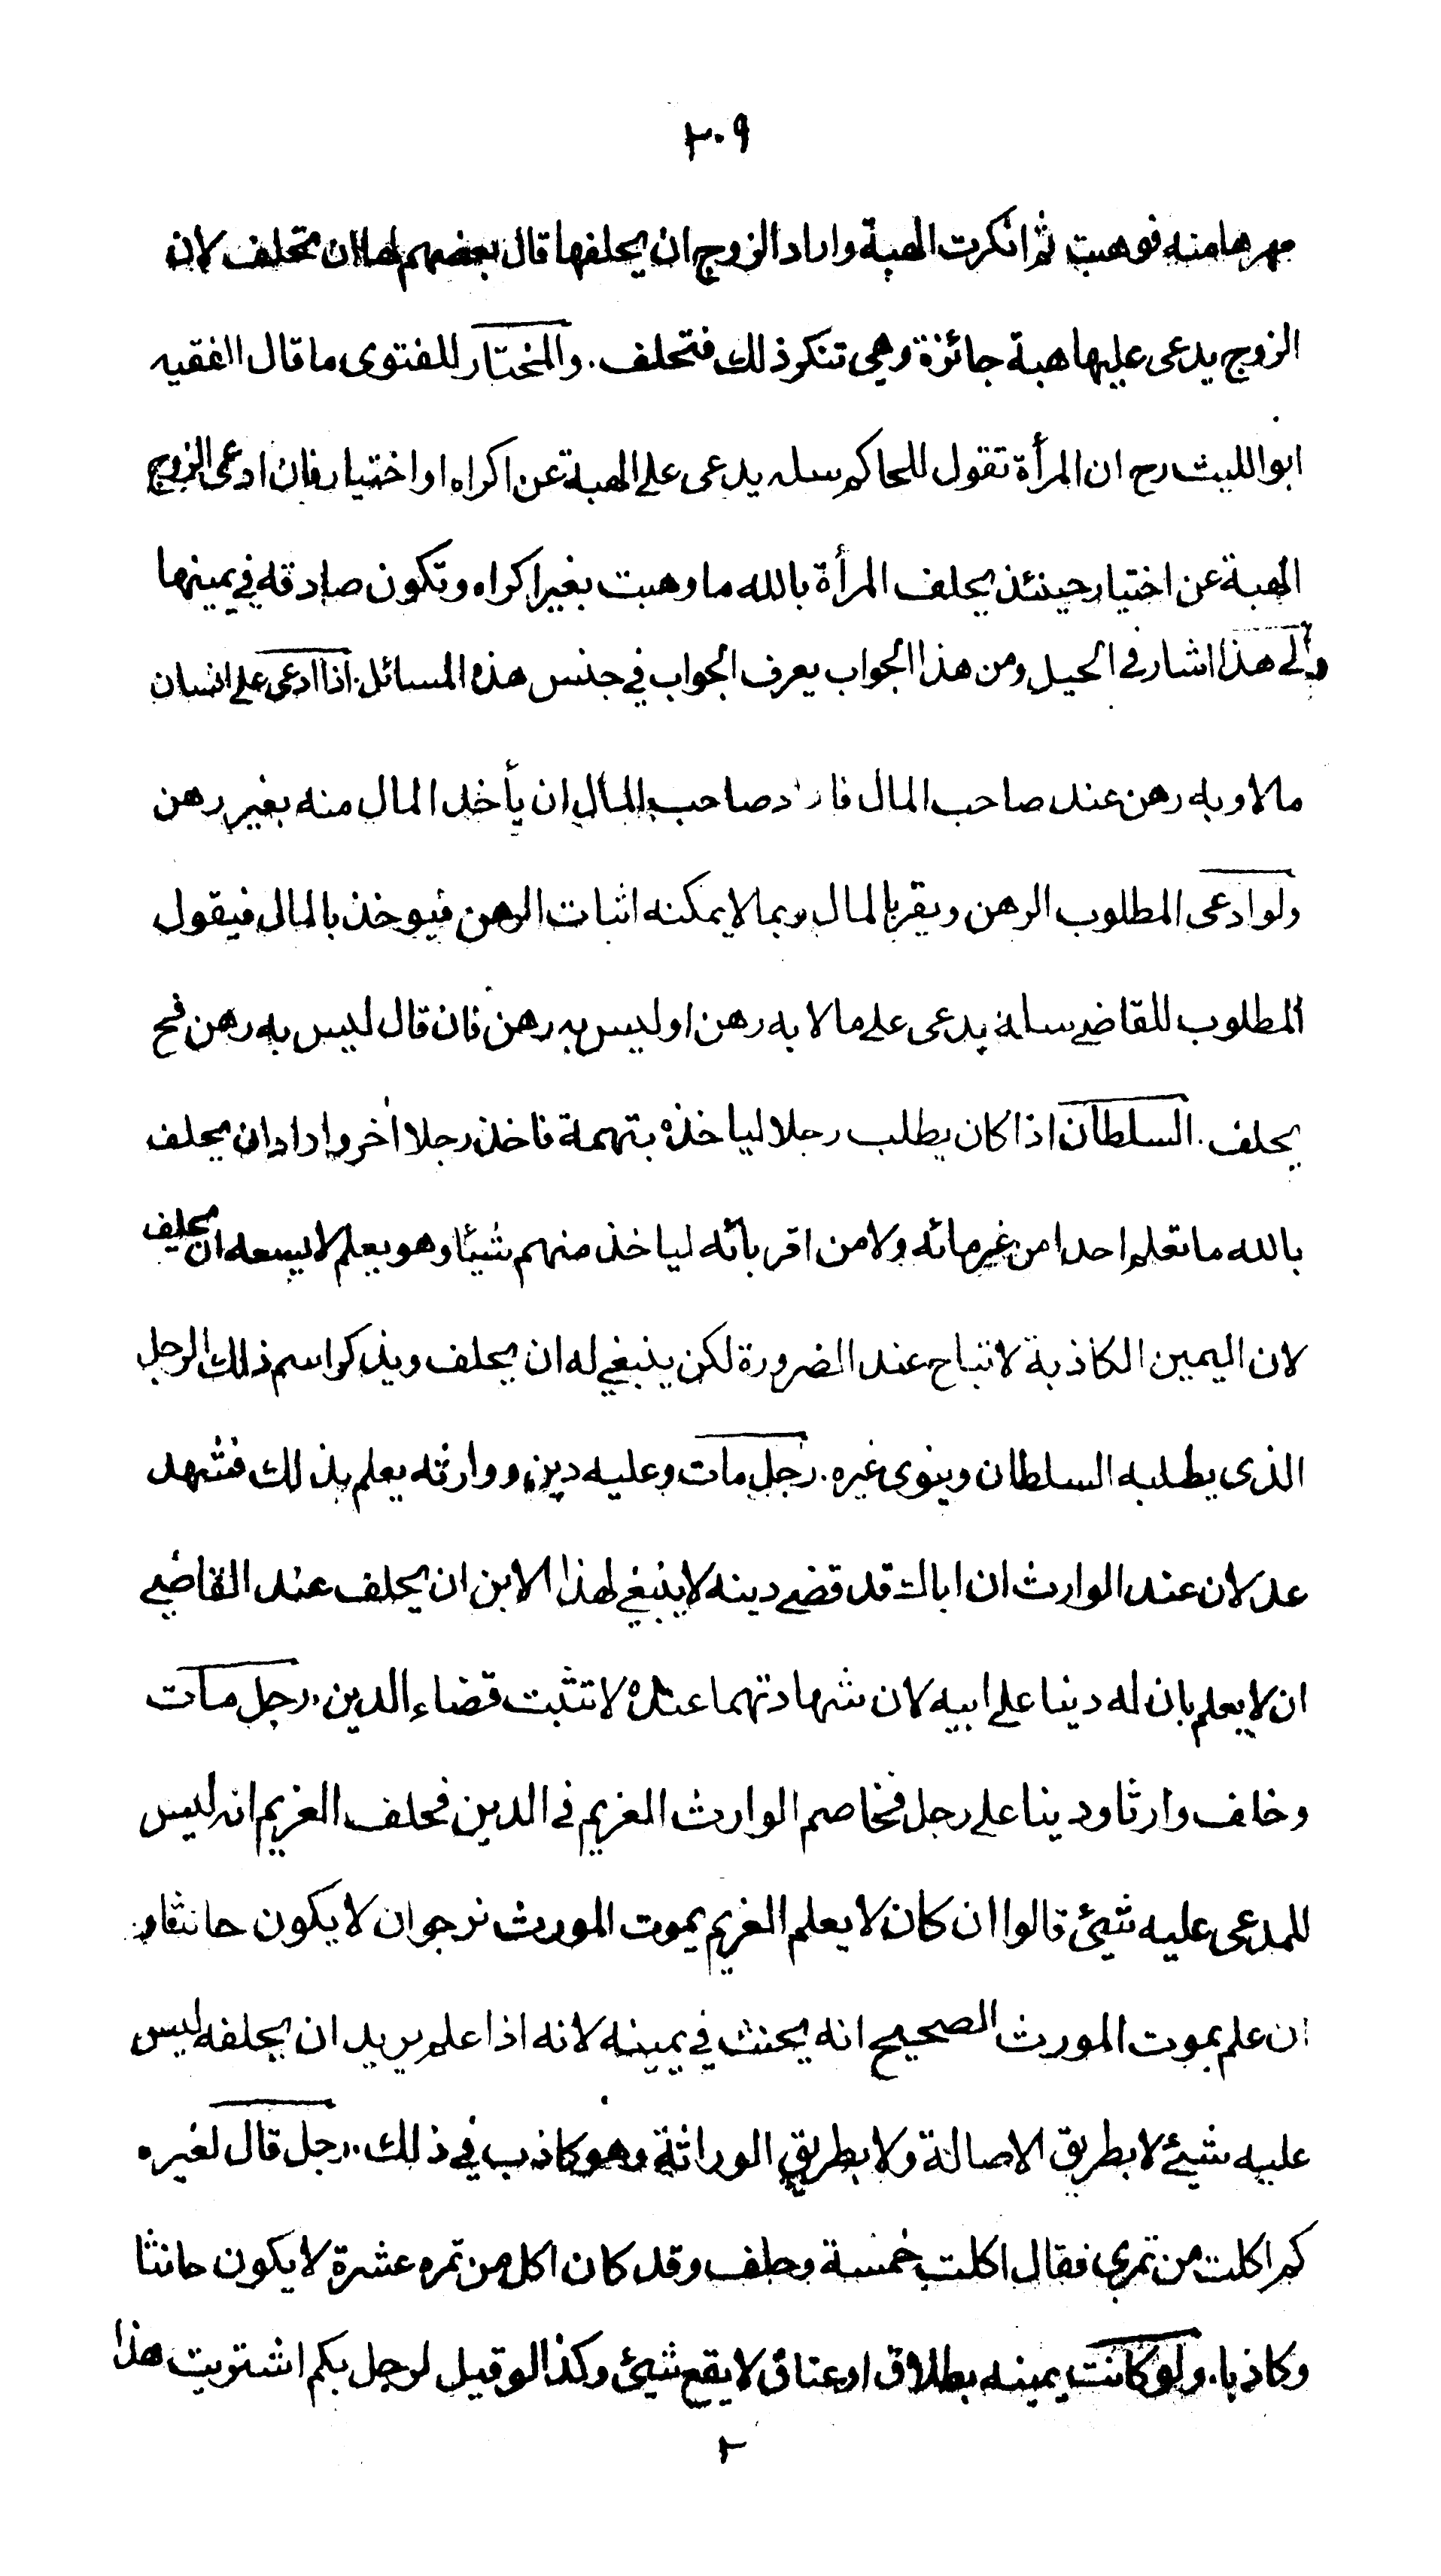 ٢٠٩
مهرها منه فوهبت ثم انكرت الهبة واراد الزوج ان يحلفها قال بعضهم لها ان تحلف لان
الزوج يدعى عليها هبة جائزة وهي تنكر ذلك فتحلف . والمختار للفتوى ما قال الفقيه
ابو الليث رح ان المرأة تقول للحاكم سله يدعى على الهبة عن اكراه او اختيار فان ادعى الزوج
الهبة عن اختيار حينئذ يحلف المرأة بالله ما وهبت بغير اكراه وتكون صادقه في يمينها
والى هذا اشار في الحيل ومن هذا الجواب يعرف الجواب في جنس هذه المسائل . اذا ادعى على انسان
مالا وبه رهن عند صاحب المال فاراد صاحب المال ان يأخذ المال منه بغير رهن
ولو ادعى المطلوب الرهن ويقر بالمال ربما لا يمكنه اثبات الرهن فيوخذ بالمال فيقول
المطلوب للقاضى سله يدعى على مالا به رهن او ليس به رهن فان قال ليس به رهن فح
يحلف . السلطان اذا كان يطلب رجلا لياخذه بتهمة فاخذ رجلا اخر واراد ان يحلف
بالله ما تعلم احدا من غرمائه ولا من اقربائه لياخذ منهم شيئا وهو يعلم لا يسعه ان يحلف
لان اليمين الكاذبة لا تباح عند الضرورة لكن ينبغي له ان يحلف ويذكر اسم ذلك الرجل
الذى يطلبه السلطان وينوى غيره . رجل مات وعليه دين ووارثه يعلم بذلك فشهد
عدلان عند الوارث ان اباك قد قضى دينه لا ينبغي لهذا الابن ان يحلف عند القاضي
ان لا يعلم بان له دينا على ابيه لان شهادتهما عنده لا تثبت قضاء الدين . رجل مات
وخلف وارثا ودينا على رجل فخاصم الوارث الغريم في الدين فحلف الغريم انه ليس
للمدعى عليه شيئ قالوا ان كان لا يعلم الغريم بموت المورث نرجو ان لا يكون حانثا و
ان علم بموت المورث الصحيح انه يحنث في يمينه لانه اذا علم يريد ان يحلفه ليس
عليه شيئ لا بطريق الاصالة ولا بطريق الوراثة وهو كاذب في ذلك . رجل قال لغيره
كم اكلت من تمري فقال اكلت خمسة وحلف وقد كان اكل من تمره عشرة لا يكون حانثا
وكاذبا . ولو كانت يمينه بطلاق او عتاق لا يقع شيئ وكذا لو قيل لرجل بكم اشتريت هذا
٢